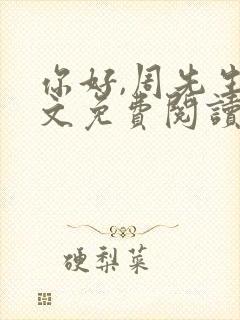 你好,周先生
文免費閱讀
硬梨菜